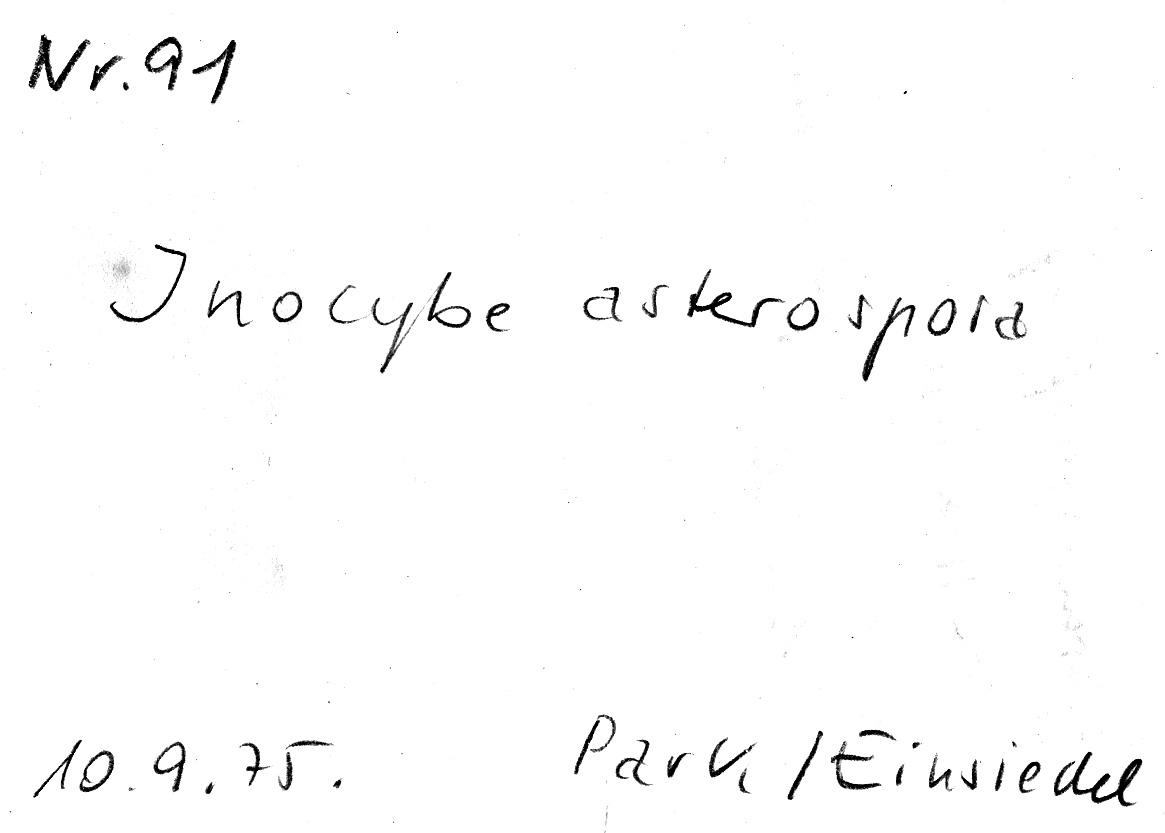 Nr. 91
Inocybe asterospora
10.9.75. Park / Einsiedel